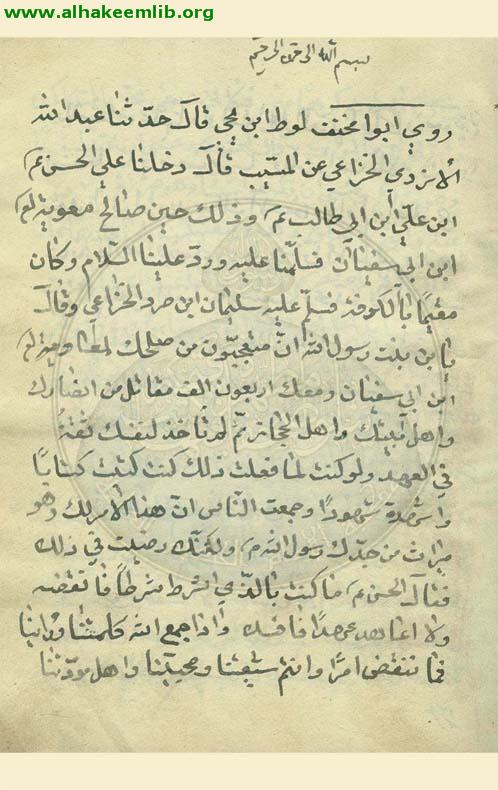 www.alhakeemlib.org
بسم الله الرحمن الرحيم
روي ابوا مخنف لوط ابن يحي قال حدثنا عبد الله
الازدي الخزاعي عن المسيب قال دخلنا علي الحسن ع
ابن علي ابن ابي طالب ع وذلك حين صالح معوية لع
ابن ابي سفيان فسلمنا عليه ورد علينا السلام وكان
مقيما بالكوفة فسلم عليه سليمان ابن صرد الخزاعي وقال
يابن بنت رسول الله ان متعجبون من صلحك لمعاوية لع
ابن ابي سفيان ومعك اربعون الف مقاتل من انصارك
واهل بيتك واهل الحجاز ثم لم تاخذ لنفسك ثقة
في العهد ولو كنت لما فعلت ذلك كنت كتبت كتابا
واشهدة شهودا وجمعت الناس ان هذا الامر لك وهو
ميراث من جدك رسول الله ص ولكنك رضيت في ذلك
فقال الحسن ع ما كنت بالذي اشرط شرطا فانقضه
ولا اعاهد عهدا فافسك واذا جمع الله كلمتنا
فما ننقض امرا وانتم شيعتنا ومحبينا واهل مودتنا